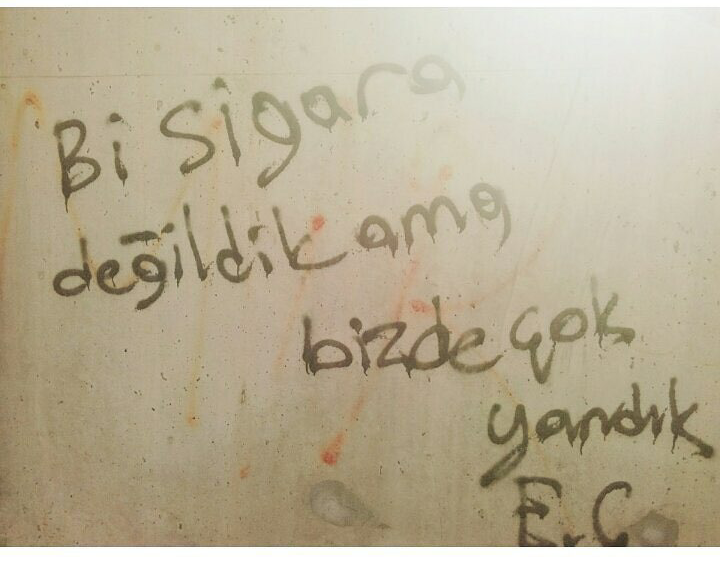 Bi Sigara
değildik ama
bizde çok
yandık
E.Ç